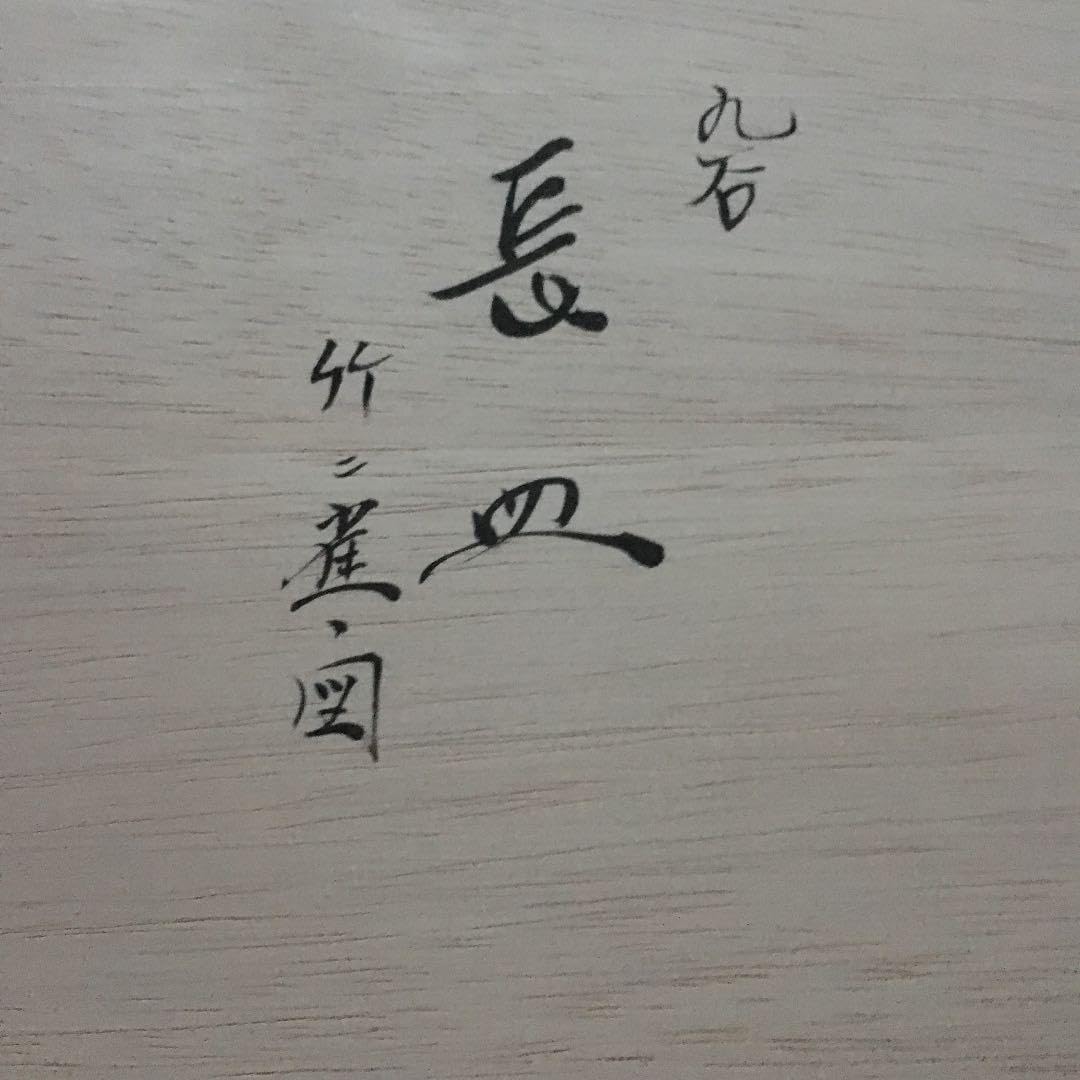 九谷
長皿
竹ニ雀ノ図